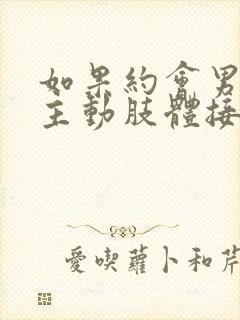 如果約會男
主動肢體接
愛喫蘿卜和芹